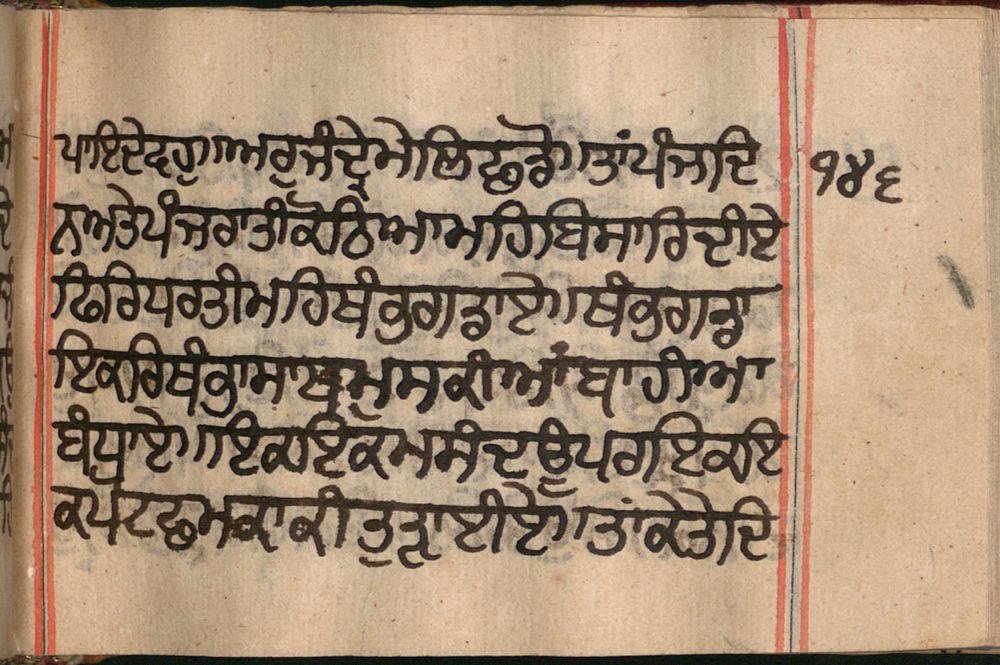 ਪਾਇਦੇਵਹੁ॥ਅਰੁਜੰਦ੍ਰੇਮੇਲਿਛਡੋ॥ਤਾਂਪੰਜਦਿ
੧੪੬
ਨਅਤੇਪੰਜਰਾਤੀਕੋਠਿਆਮਹਿਬਿਸਾਰਿਦੀਏ
ਫਿਰਿਧਰਤੀਮਹਿਥੰਭੁਗਡਾਏ॥ਥੰਭੁਗਡਾ
ਇਕਰਿਥੰਭਾਸਾਥਮੁਸਕੀਆਂਬਾਹੀਆ
ਬੰਧਾਏ॥ਇਕਇਕਮਸੰਦਉਪਰਇਕਇ
ਕਪੰਟਛਮਕਾਕੀਤੁੜਾਈਏ॥ਤਾਂਕੇਤੇਦਿ